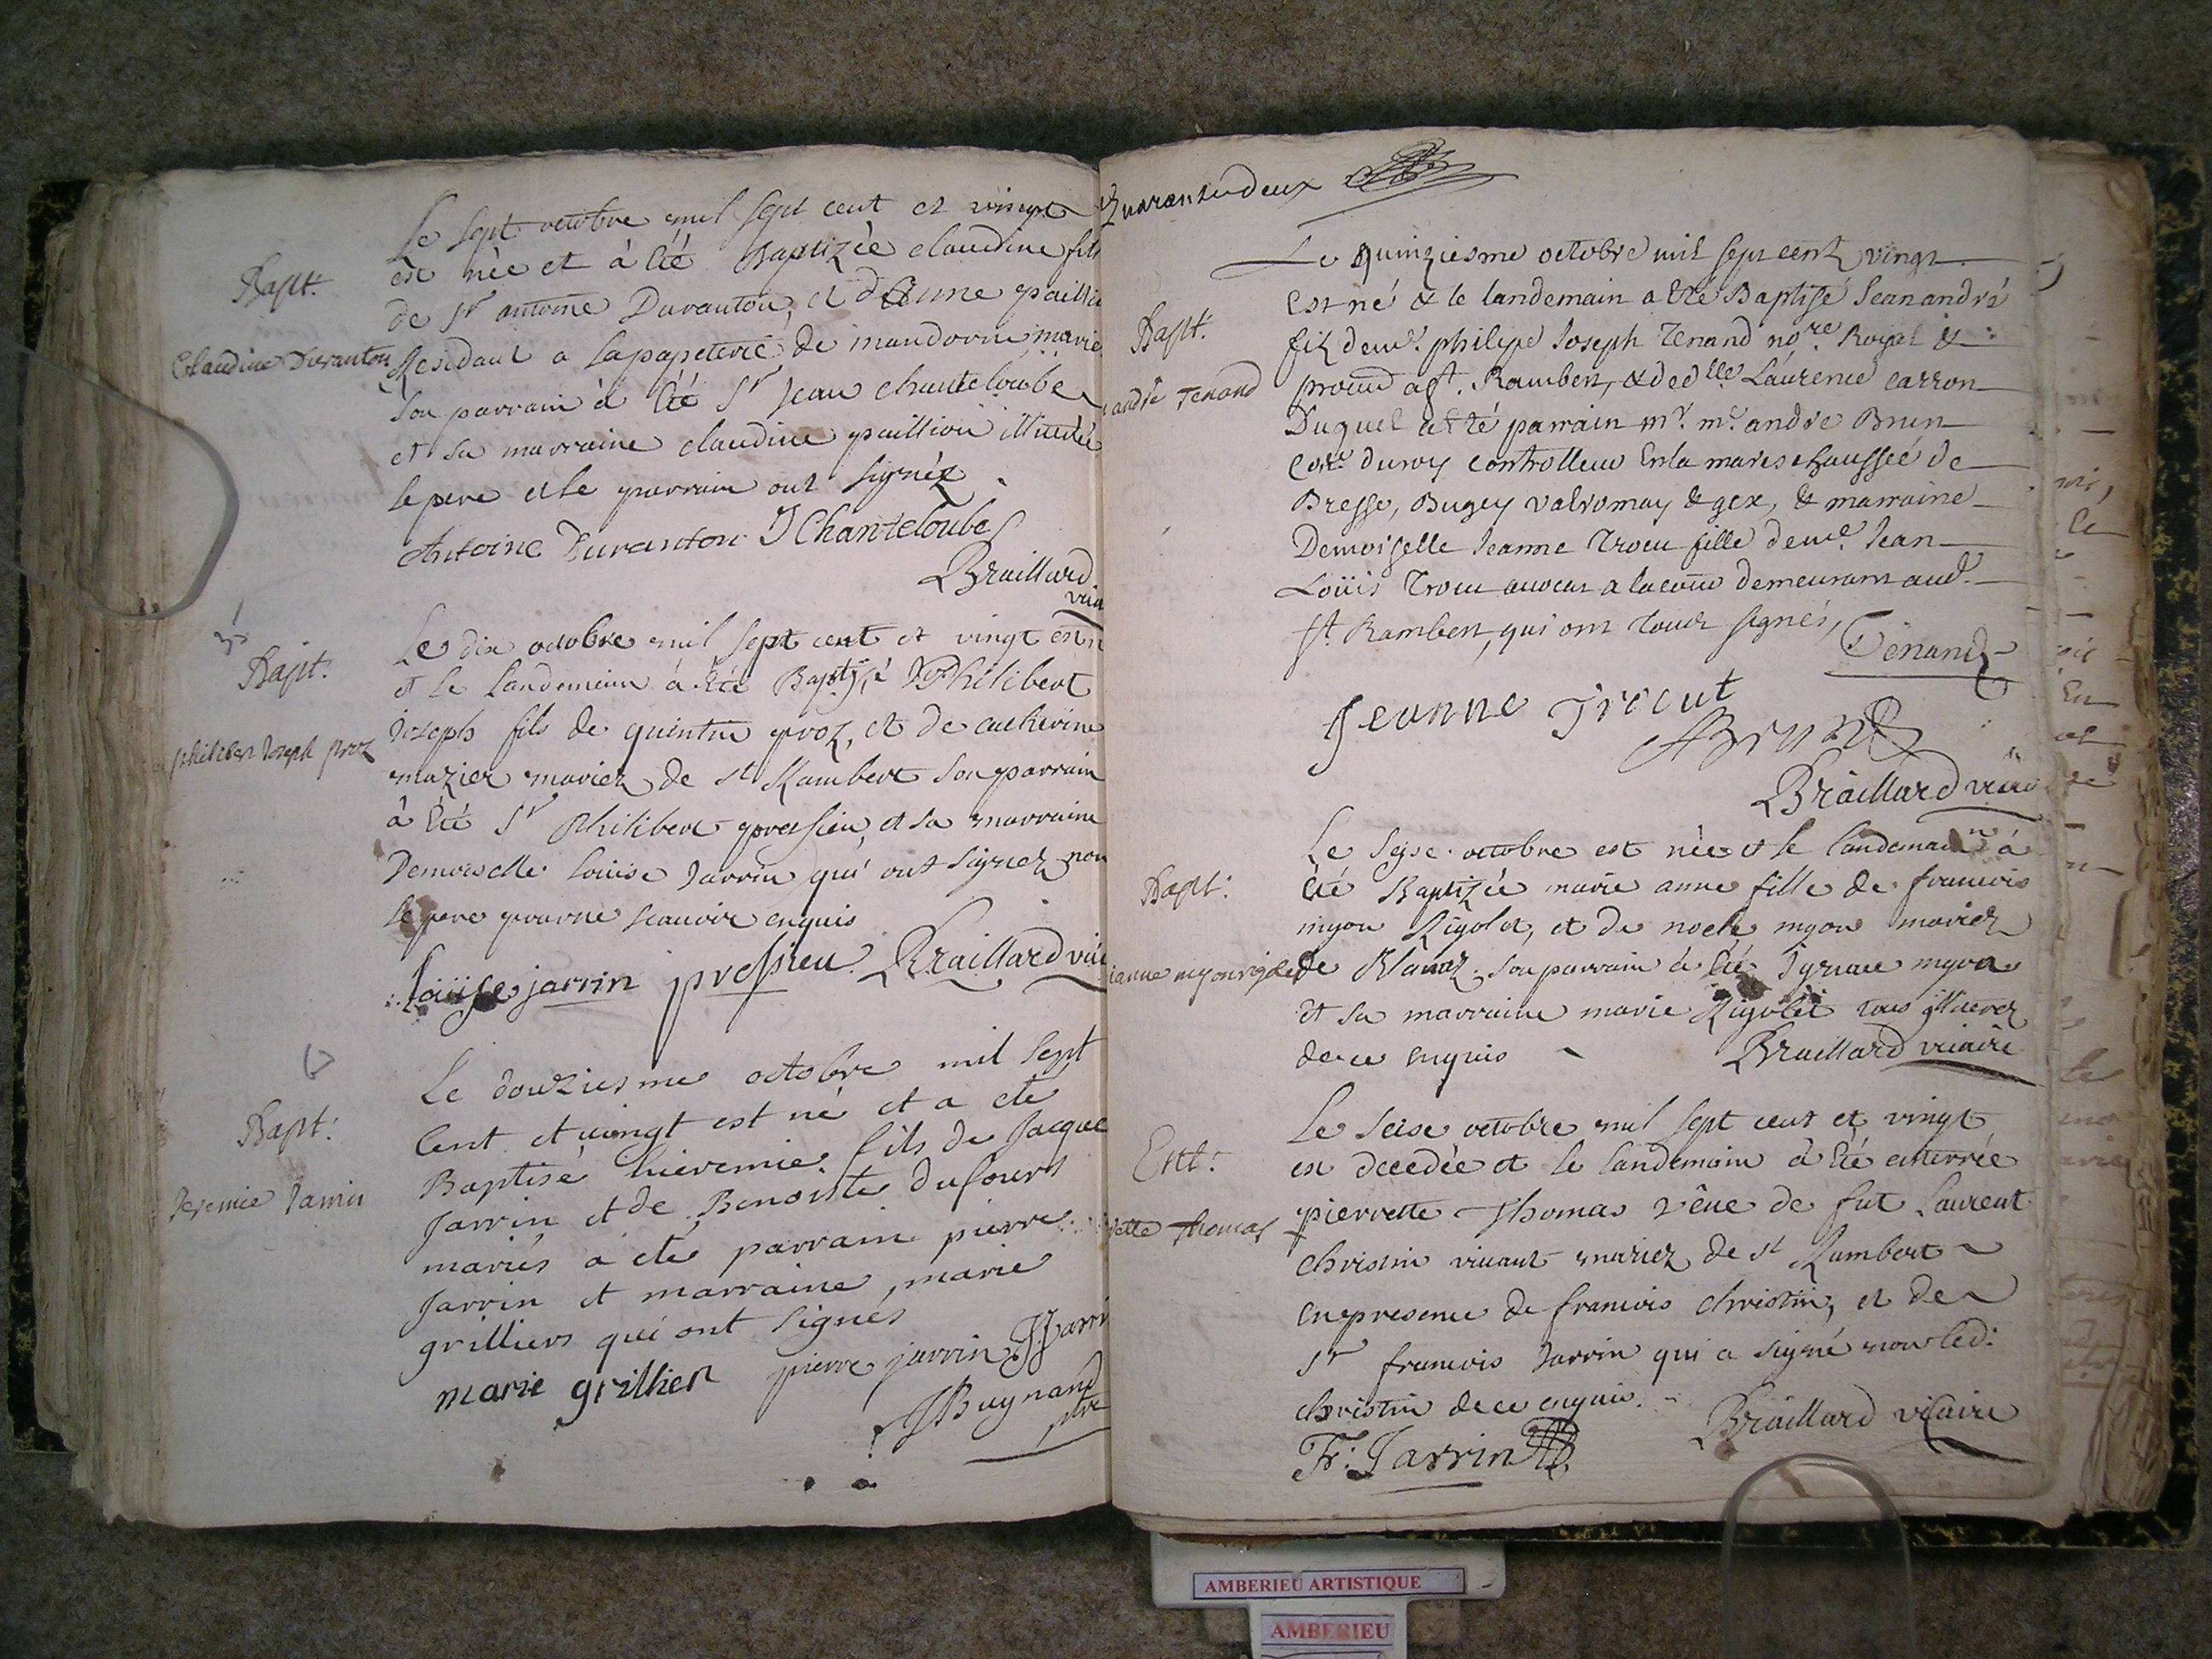 Le sept octobre mil sept cent et vingt
est née et à été Baptizée claudine fille
Bapt.
de Sr antoine Duranton, et d'anne paillio
Claudine Duranton
Residant a la papeterie de mandorne marie
son parrain à été Sr Jean chanteloube
et sa marraine claudine paillion illiterée
le pere et le parrain ont signéz
Antoine Duranton JChanteloube
Braillard
vicai
Le dix octobre mil sept cent et vingt est n
Bapt.
et le landemain à été Baptisé Philibert
Joseph fils de quintin proz, et de catherine
philibert Joseph proz
mazier mariez de st Rambert son parrain
à été Sr Philibert pressieu, et sa marraine
Demoiselle Louise Jarrin qui ont signez non
le pere pour ne scauoir enquis
Loüise jarrin pressieu Braillard vic
Le douziesme octobre mil sept
Bapt:
Cent et uingt est né et a eté
Baptisé hieremie fils de Jacque
Jeremie Jarrin
Jarrin et de Benoiste dufour
mariés a eté parrain pierre
Jarrin et marraine, marie
grilliers qui ont signes
marie grillier pierre jarrin JJarri
JBugnand
ptre
Quarante deux
Le Quinziesme octobre mil sept cent vingt
Est né & le landemain a été Baptisé Jean andré
Bapt.
fils de mr. philipe Joseph Tenand nore Royal &
andré Tenand
procur a st. Rambert, & de dlle Laurence carron
Duquel a été parrain mr. me. andre Brun
Cer du roy controlleur En la mareschaussée de
Bresse, Bugey valromay & gex, & marraine
Demoiselle Jeanne Trocu fille de me. Jean
Loüis Trocu auocat a la cour demeurant aud.
st Rambert, qui ont touts signés,
Tenand
Jeanne Trocut
ABrun
Braillard vicai
Le seise octobre est née et le landemain à
Bapt:
été Baptizée marie anne fille de francois
myon Rigolet, et de noele myon mariez
ianne myon rigolet
de Blanaz son parrain à été Jgnace myon
et sa marraine marie Rigolet tous illiterez
de ce enquis Braillard vicaire
Le seise octobre mil sept cent et vingt
Ent:
est decedée et le landemain à été enterrée
pierrette Thomas vêue de fut Laurent
rette thomas
christin viuant mariez de st Rambert
en presence de francois christin, et de
Sr francois Jarrin qui a signé non led:
christin de ce enquis.
Braillard vicaire
Fr: Jarrin
AMBERIEU ARTISTIQUE
AMBERIEU